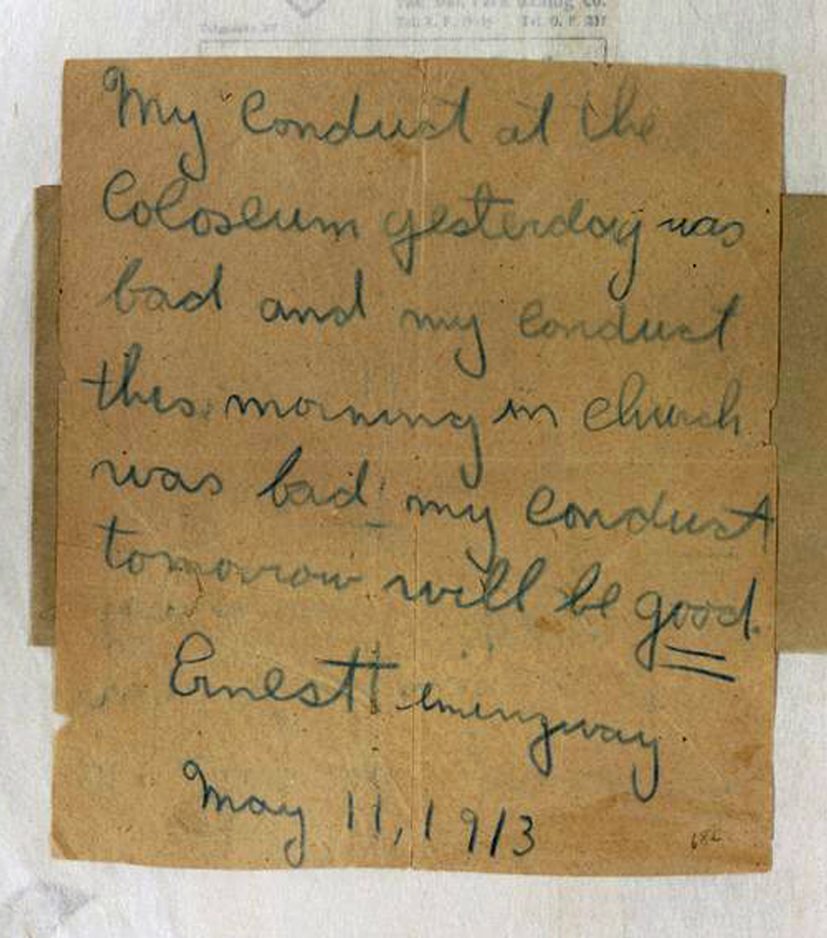 Tel. O. P. 211
My Conduct at the
Coloseum yesterday was
bad and my conduct
this morning in church
was bad my conduct
tomorrow will be good.
Ernest Hemingway.
May 11, 1913